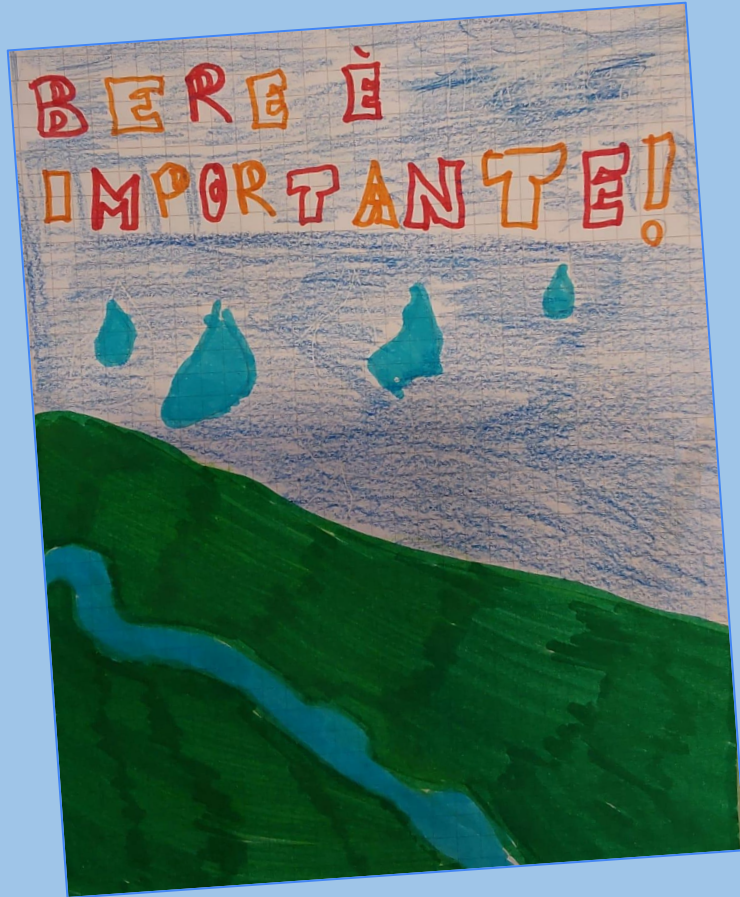 BERE È
IMPORTANTE!